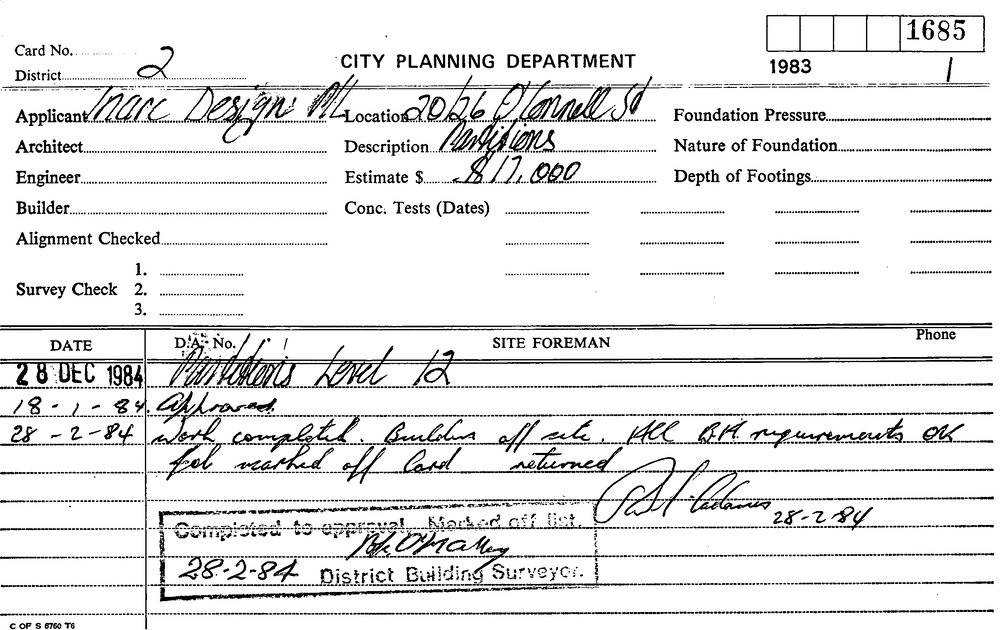 1685
Card No.
District 2
CITY PLANNING DEPARTMENT
1983 1
Applicant Inarc Design P/L Location 20/26 O'Connell St Foundation Pressure
Architect Description Partitions Nature of Foundation
Engineer Estimate $ $17,000 Depth of Footings
Builder Conc. Tests (Dates)
Alignment Checked
1.
Survey Check 2.
3.
DATE D.A. No. SITE FOREMAN Phone
28 DEC 1984 Partitions Level 12
18-1-84. Approved.
28-2-84 Work completed. Builders off site. All B.A. requirements OK
Job marked off Card returned
28-2-84
Completed to approval. Marked off list.
28-2-84 District Building Surveyor.
C OF S 6760 T6